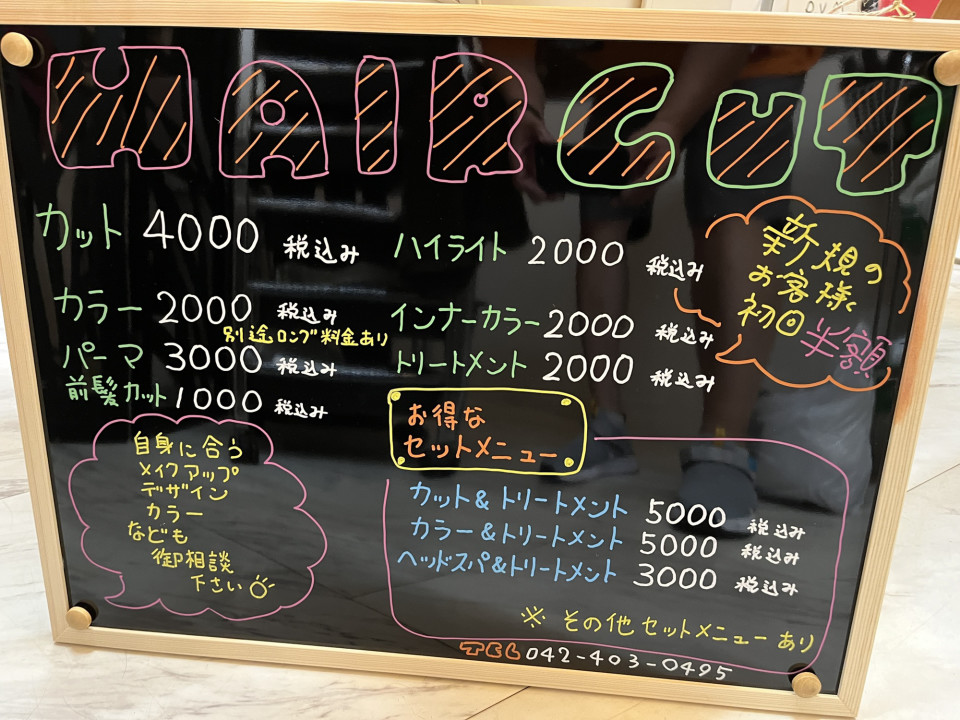 HAIR CUT
カット 4000 税込み
カラー 2000 税込み
別途ロング料金あり
パーマ 3000 税込み
前髪カット 1000 税込み
ハイライト 2000 税込み
インナーカラー 2000 税込み
トリートメント 2000 税込み
新規の
お客様
初回半額
自身に合う
メイクアップ
デザイン
カラー
なども
御相談
下さい
お得な
セットメニュー
カット&トリートメント 5000 税込み
カラー&トリートメント 5000 税込み
ヘッドスパ&トリートメント 3000 税込み
※ その他セットメニューあり
TEL 042-403-0495